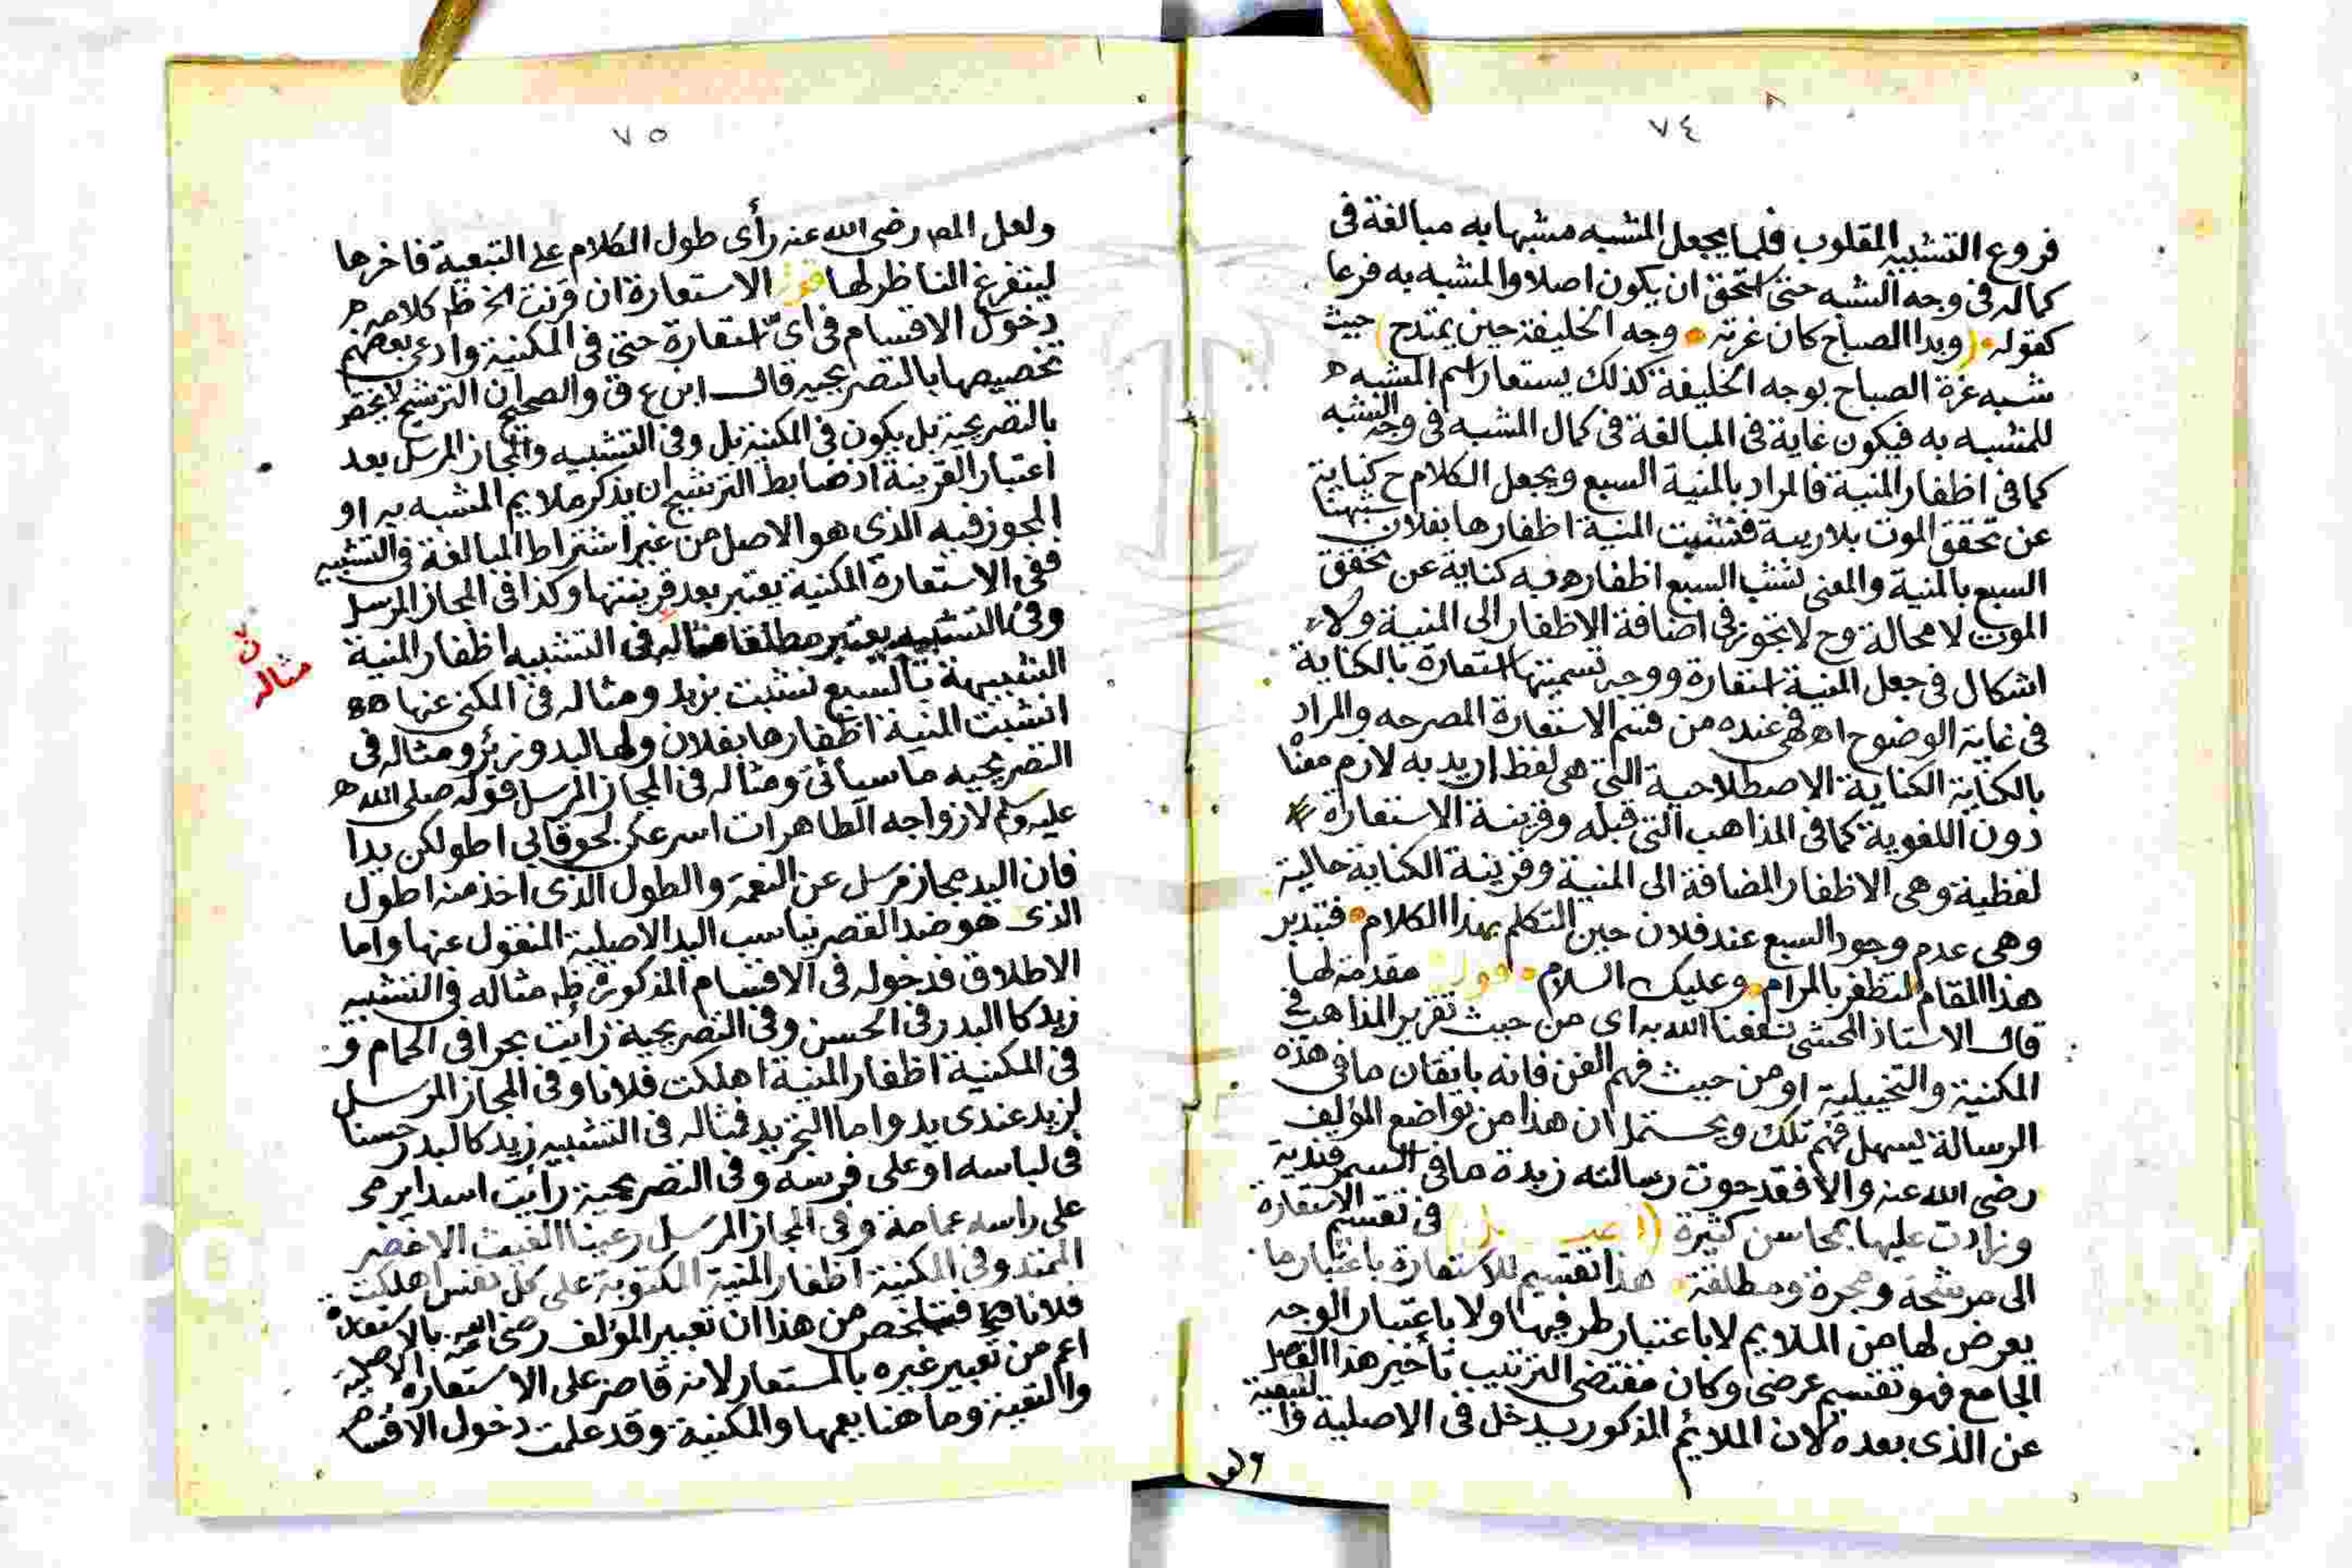 ٧٤
فروع التشبيه المقلوب فلما يجعل المشبه مشبها به مبالغة فى
كماله فى وجه الشبه حتى استحق ان يكون اصلا والمشبه به فرعا
كقوله (وبدا الصباح كان غرته وجه الخليفة حين يمتدح) حيث
شبه غرة الصباح بوجه الخليفة كذلك يستعار اسم المشبه
للمشبه به فيكون غاية فى المبالغة فى كمال المشبه فى وجه الشبه
كما فى اظفار المنية فالمراد بالمنية السبع ويجعل الكلام ح كناية
عن تحقق الموت بلا ريبة فنشبت المنية اظفارها بفلان شبهنا
السبع بالمنية والمعنى نشب السبع اظفاره فيه كناية عن تحقق
الموت لا محالة وح لا تجوز فى اضافة الاظفار الى المنية ولا
اشكال فى جعل المنية استعارة ووجه تسميتها استعارة بالكناية
فى غاية الوضوح اه فهى عنده من قسم الاستعارة المصرحه والمراد
بالكناية الكناية الاصطلاحية التى هى لفظ اريد به لازم معناه
دون اللغوية كما فى المذاهب التى قبله وقرينة الاستعارة
لفظية وهى الاظفار المضافة الى المنية وقرينة الكناية حالية
وهى عدم وجود السبع عند فلان حين التكلم بهذا الكلام فتدبر
هذا المقام لتظفر بالمرام وعليك السلام قوله مقدمة لها
قال الاستاذ المحشى نفعنا الله به اى من حيث تقرير المذاهب فى
المكنية والتخييلية او من حيث فهم الفن فانه باتقان ما فى هذه
الرسالة يسهل فهم تلك ويحتمل ان هذا من تواضع المؤلف
رضى الله عنه والا فقد حوت رسالته زبدة ما فى السمرقندية
وزادت عليها بمحاسن كثيرة فى تقسيم الاستعارة
الى مرشحة ومجردة ومطلقة هذا تقسيم للاستعارة باعتبار ما
يعرض لها من الملايم لا باعتبار طرفيها ولا باعتبار الوجه
الجامع فهو تقسيم عرضى وكان مقتضى الترتيب تأخير هذا الفصل
عن الذى بعده لان الملائم المذكور يدخل فى الاصلية والتبعية
ولعل
٧٥
ولعل المص رضى الله عنه رأى طول الكلام على التبعية فاخرها
ليتفرغ الناظر لها قوله الاستعارة ان قرنت الخ ظ كلامه
دخول الاقسام فى اى استعارة حتى فى المكنية وادعى بعضهم
تخصيصها بالتصريحيه قال ابن ع ق والصحيح ان الترشيح لا يختص
بالتصريحية بل يكون فى المكنية بل وفى التشبيه والمجاز المرسل بعد
اعتبار القرينة اذ ضابط الترشيح ان يذكر ملايم المشبه به او
المجوز فيه الذى هو الاصل من غير اشتراط المبالغة فى التشبيه
ففى الاستعارة المكنية يعتبر بعد قرينتها وكذا فى المجاز المرسل
وفى التشبيه يعتبر مطلقا مثاله فى التشبيه اظفار المنية
الشبيهة بالسبع نشبت بزيد ومثاله فى المكنى عنها
انشبت المنية اظفارها بفلان ولها لبد وزئر ومثاله فى
التصريحيه ما سيأتى ومثاله فى المجاز المرسل قوله صلى الله
عليه وسلم لازواجه الطاهرات اسرعكن لحوقا بى اطولكن يدا
فان اليد مجاز مرسل عن النعمة والطول الذى اخذ منه اطول
الذى هو ضد القصر يناسب اليد الاصلية المنقول عنها واما
الاطلاق فدخوله فى الاقسام المذكورة ظ مثاله فى التشبيه
زيد كالبدر فى الحسن وفى التصريحية رأيت بحرا فى الحمام و
فى المكنية اظفار المنية اهلكت فلانا وفى المجاز المرسل
لزيد عندى يد واما التجريد فمثاله فى التشبيه زيد كالبدر حسنا
فى لباسه او على فرسه وفى التصريحية رأيت اسدا يرمى
على راسه عمامة وفى المجاز المرسل رعينا الغيث الاخضر
الممتد وفى المكنية اظفار المنية المكتوبة على كل نفس اهلكت
فلانا فتلخص من هذا ان تعبير المؤلف رضى الله عنه بالاستعارة
اعم من تعبير غيره بالمستعار لانه قاصر على الاستعارة الاصلية
والتبعية وما هنا يعمها والمكنية وقد علمت دخول الاقسام
مثاله